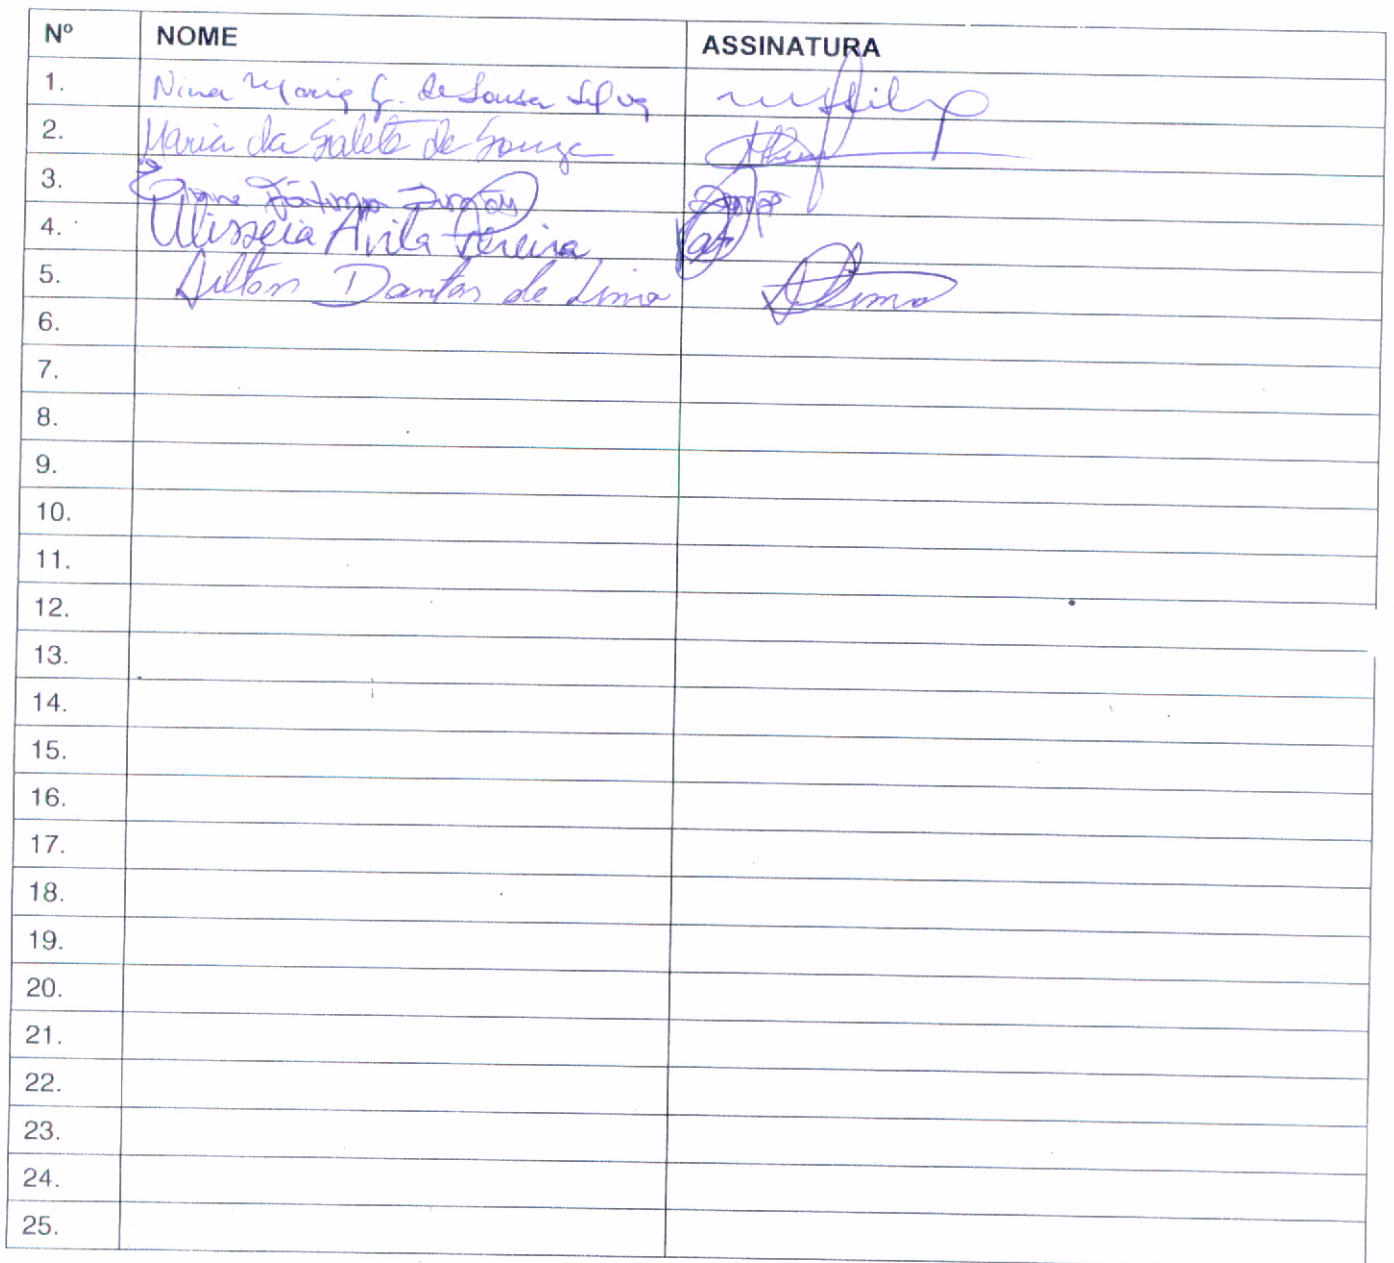 Nº NOME ASSINATURA
1. Nina Maria G. de Sousa Silva
2. Maria da Salete de Souza
3. Fátima
4. Ulisséia Ávila Pereira
5. Ailton Dantas de Lima ALima
6.
7.
8.
9.
10.
11.
12.
13.
14.
15.
16.
17.
18.
19.
20.
21.
22.
23.
24.
25.